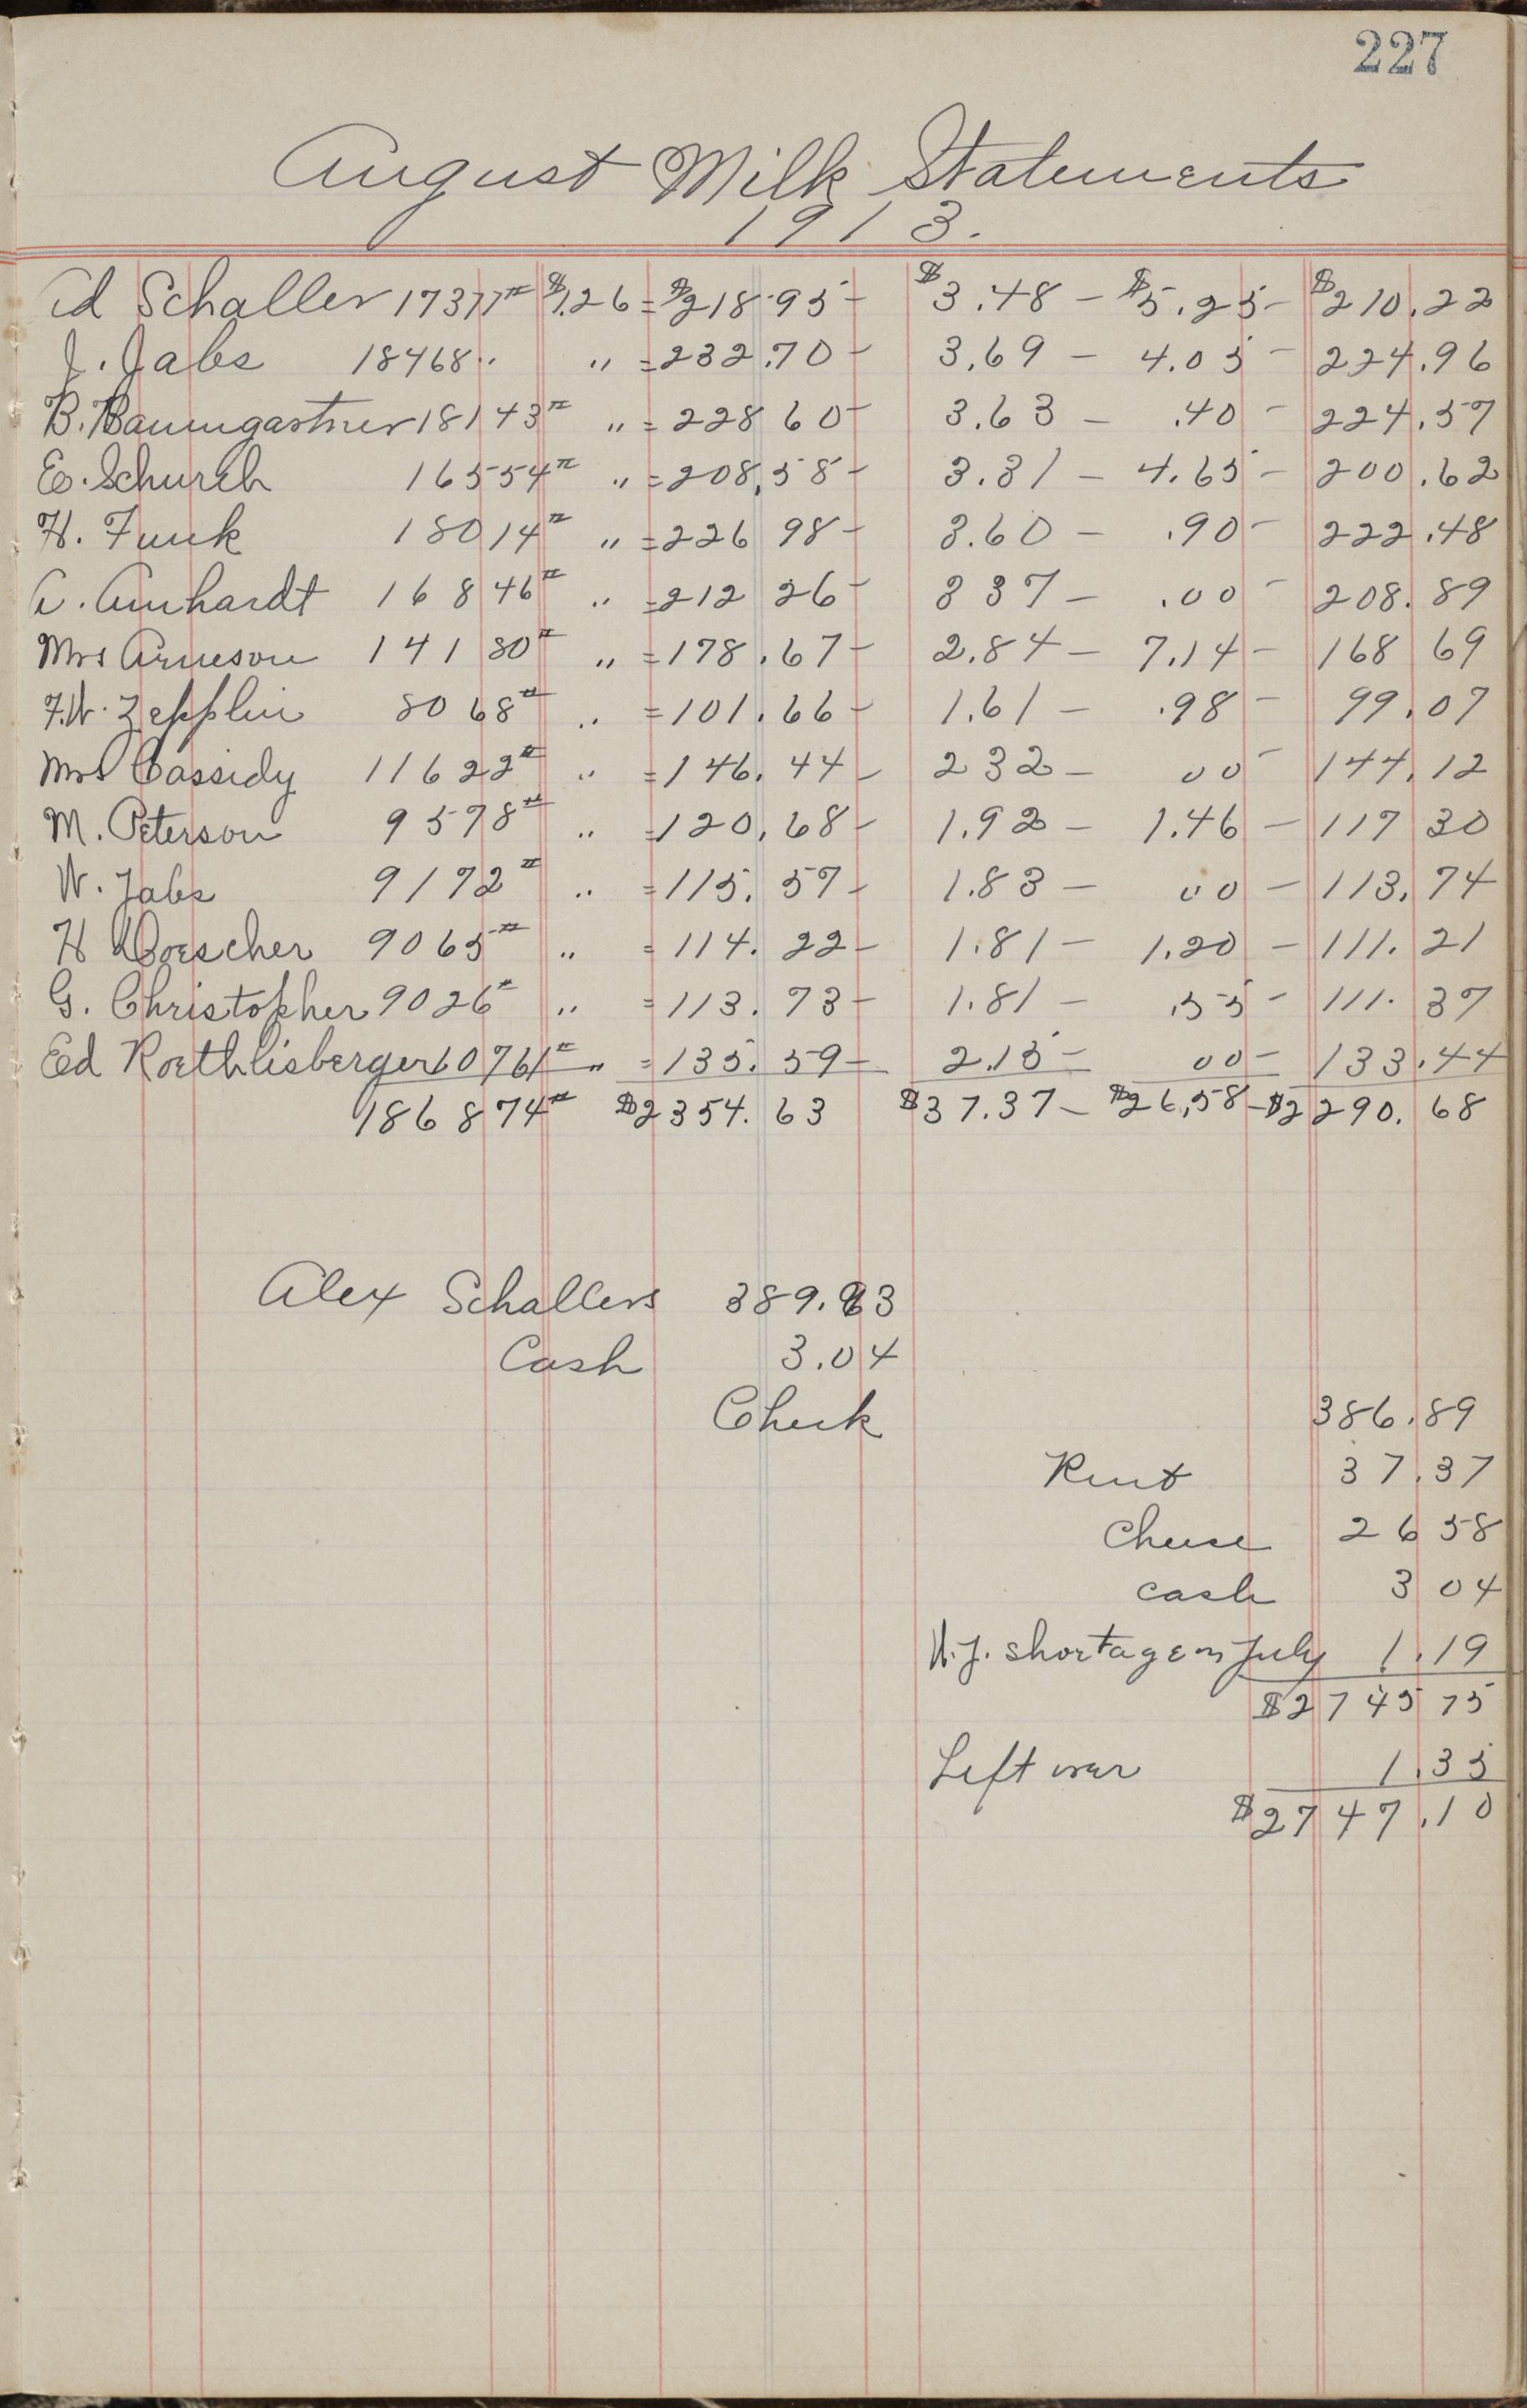 227
August Milk Statements
1913.
Ed Schaller 17377# $1.26 = $218.95 - $3.48 - $5.25 - $210.22
J. Jabs 18468 " " = 232.70 - 3.69 - 4.05 - 224.96
B. Baumgartner 18143# " = 228 60 - 3.63 - .40 - 224.57
E. Schurch 16554# " = 208.58 - 3.31 - 4.65 - 200.62
H. Funk 18014# " = 226 98 - 3.60 - .90 - 222.48
A. Amhardt 16846# " = 212 26 - 3 37 - .00 - 208.89
Mrs Arneson 14180# " = 178.67 - 2.84 - 7.14 - 168 69
F.W. Zepplin 8068# " = 101.66 - 1.61 - .98 - 99.07
Mrs Cassidy 11622# " = 146.44 - 2 32 - 00 - 144.12
M. Peterson 9578# " = 120.68 - 1.92 - 1.46 - 117 30
W. Jabs 9172# " = 115.57 - 1.83 - 00 - 113.74
H Woescher 9065# " = 114.22 - 1.81 - 1.20 - 111.21
G. Christopher 9026# " = 113.73 - 1.81 - .55 - 111.37
Ed Roethlisberger 10761# " = 135.59 - 2.15 - 00 - 133.44
186874# $2354.63 $37.37 - $26.58 - $2290.68
Alex Schallers 389.93
Cash 3.04
Check 386.89
Rent 37.37
Cheese 26 58
cash 3 04
W.J. shortage on July 1.19
$2745 75
Left over 1.35
$2747.10